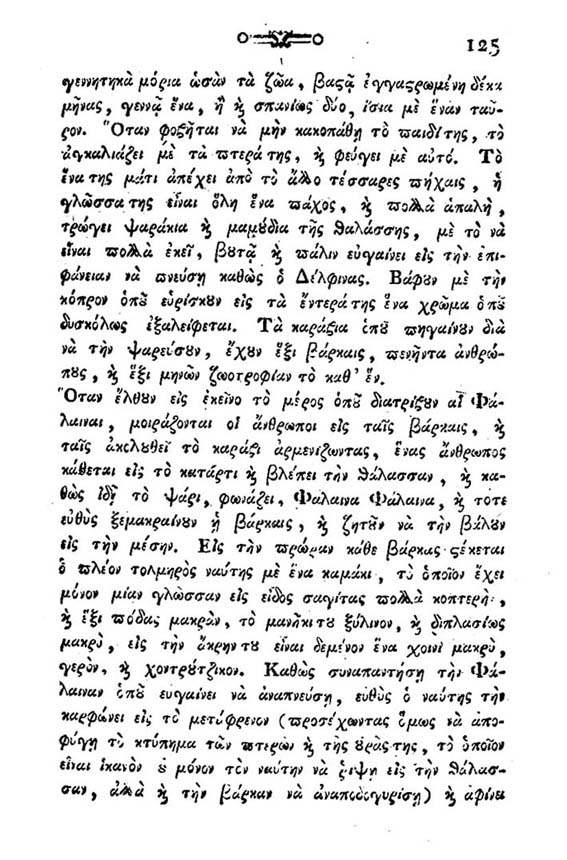 125
γεννητηκὰ μόρια ὡσὰν τὰ ζῶα, βαϛᾷ ἐγγαϛρωμένη δέκα
μῆνας, γεννᾷ ἕνα, ἢ ϗ σπανίως δύο, ἴσια μὲ ἕναν ταῦ-
ρον. Ὅταν φοβῆται νὰ μὴν κακοπάθῃ τὸ παιδίτης, τὸ
ἀγκαλιάζει μὲ τὰ πτεράτης, ϗ φεύγει μὲ αὐτό. Τὸ
ἕνατης μάτι ἀπέχει ἀπὸ τὸ ἄλλο τέσσαρες πήχαις, ἡ
γλῶσσατης εἶναι ὅλη ἕνα πάχος, ϗ πολλὰ ἁπαλὴ,
τρώγει ψαράκια ϗ μαμύδια τῆς θαλάσσης, μὲ τὸ νὰ
εἶναι πολλὰ ἐκεῖ, βουτᾷ ϗ πάλιν εὐγαίνει εἰς τὴν ἐπι-
φάνειαν νὰ πνεύσῃ καθὼς ὁ Δέλφινας. Βάφουν μὲ τὴν
κόπρον ὁποῦ εὑρίσκουν εἰς τὰ ἔντεράτης ἕνα χρῶμα ὁποῦ
δυσκόλως ἐξαλείφεται. Τὰ καράβια ὁποῦ πηγαίνουν διὰ
νὰ τὴν ψαρεύσουν, ἔχουν ἕξι βάρκαις, πενῆντα ἀνθρώ-
πους, ϗ ἕξι μηνῶν ζωοτροφίαν τὸ καθ' ἕν.
Ὅταν ἔλθουν εἰς ἐκεῖνο τὸ μέρος ὁποῦ διατρίβουν αἱ Φά-
λαιναι, μοιράζονται οἱ ἄνθρωποι εἰς ταῖς βάρκαις, ϗ
ταῖς ἀκολουθεῖ τὸ καράβι ἀρμενίζωντας, ἕνας ἄνθρωπος
κάθεται εἰς τὸ κατάρτι ϗ βλέπει τὴν θάλασσαν, ϗ κα-
θὼς ἰδῇ τὸ ψάρι, φωνάζει, Φάλαινα Φάλαινα, ϗ τότε
εὐθὺς ξεμακραίνουν ἡ βάρκαις, ϗ ζητοῦν νὰ τὴν βάλουν
εἰς τὴν μέσην. Εἰς τὴν πρώραν κάθε βάρκας ϛέκεται
ὁ πλέον τολμηρὸς ναύτης μὲ ἕνα καμάκι, τὸ ὁποῖον ἔχει
μόνον μίαν γλῶσσαν εἰς εἶδος σαγίτας πολλὰ κοπτερὴν,
ϗ ἕξι πόδας μακρὰν, τὸ μανῆκιτου ξύλινον, ϗ διπλασίως
μακρὺ, εἰς τὴν ἄκρηντου εἶναι δεμένον ἕνα χοινὶ μακρὺ,
γερὸν, ϗ χοντρούτζικον. Καθὼς συναπαντήσῃ τὴν Φά-
λαιναν ὁποῦ εὐγαίνει νὰ ἀναπνεύσῃ, εὐθὺς ὁ ναύτης τὴν
καρφώνει εἰς τὸ μετάφρενον (προσέχωντας ὅμως νὰ ἀπο-
φύγῃ τὸ κτύπημα τῶν πτερῶν ϗ τῆς οὐρᾶςτης, τὸ ὁποῖον
εἶναι ἱκανὸν οὐ μόνον τὸν ναύτην νὰ ῥίψῃ εἰς τὴν θάλασ-
σαν, ἀλλὰ ϗ τὴν βάρκαν νὰ ἀναποδογυρίσῃ) ϗ ἀφίνει